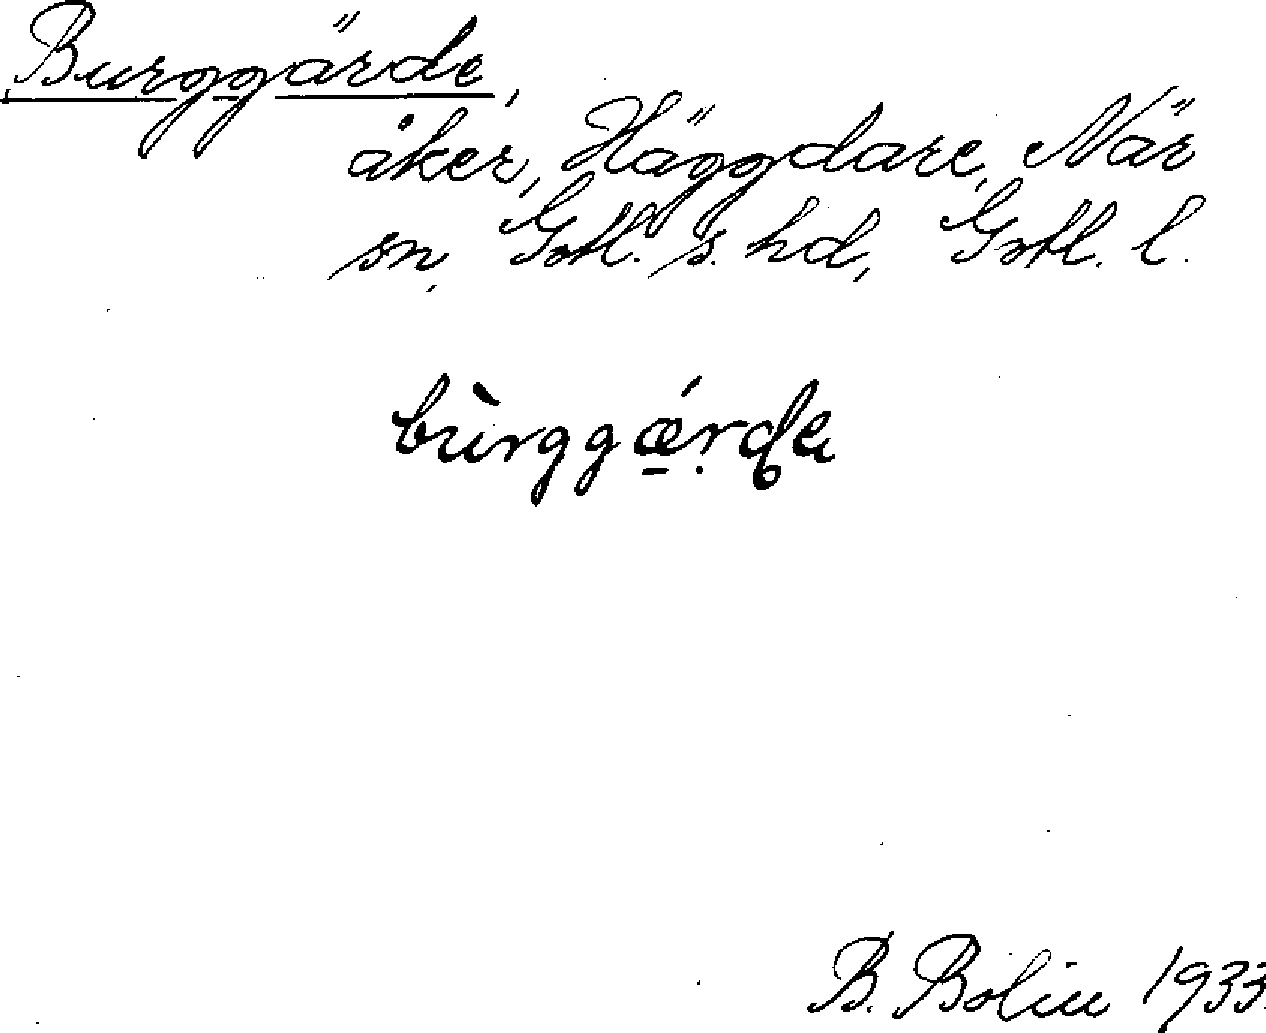 Burggärde,
åker, Häggdare, När
sn, Gotl. s. hd, Gotl. l.
bùrggǽ̱ṛɖa
B. Bolin 1933.